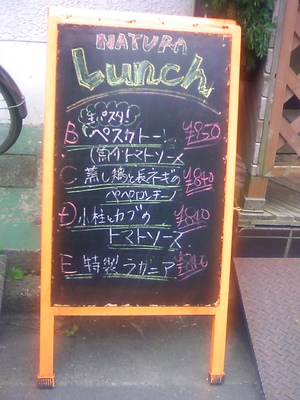 NATURA
Lunch
生パスタ!
B ペスカトーレ ¥950
(魚介トマトソース
C 蒸し鶏と長ネギの ¥840
ペペロンチーノ
D 小柱とカブの ¥840
トマトソース
E 特製 ラザニア